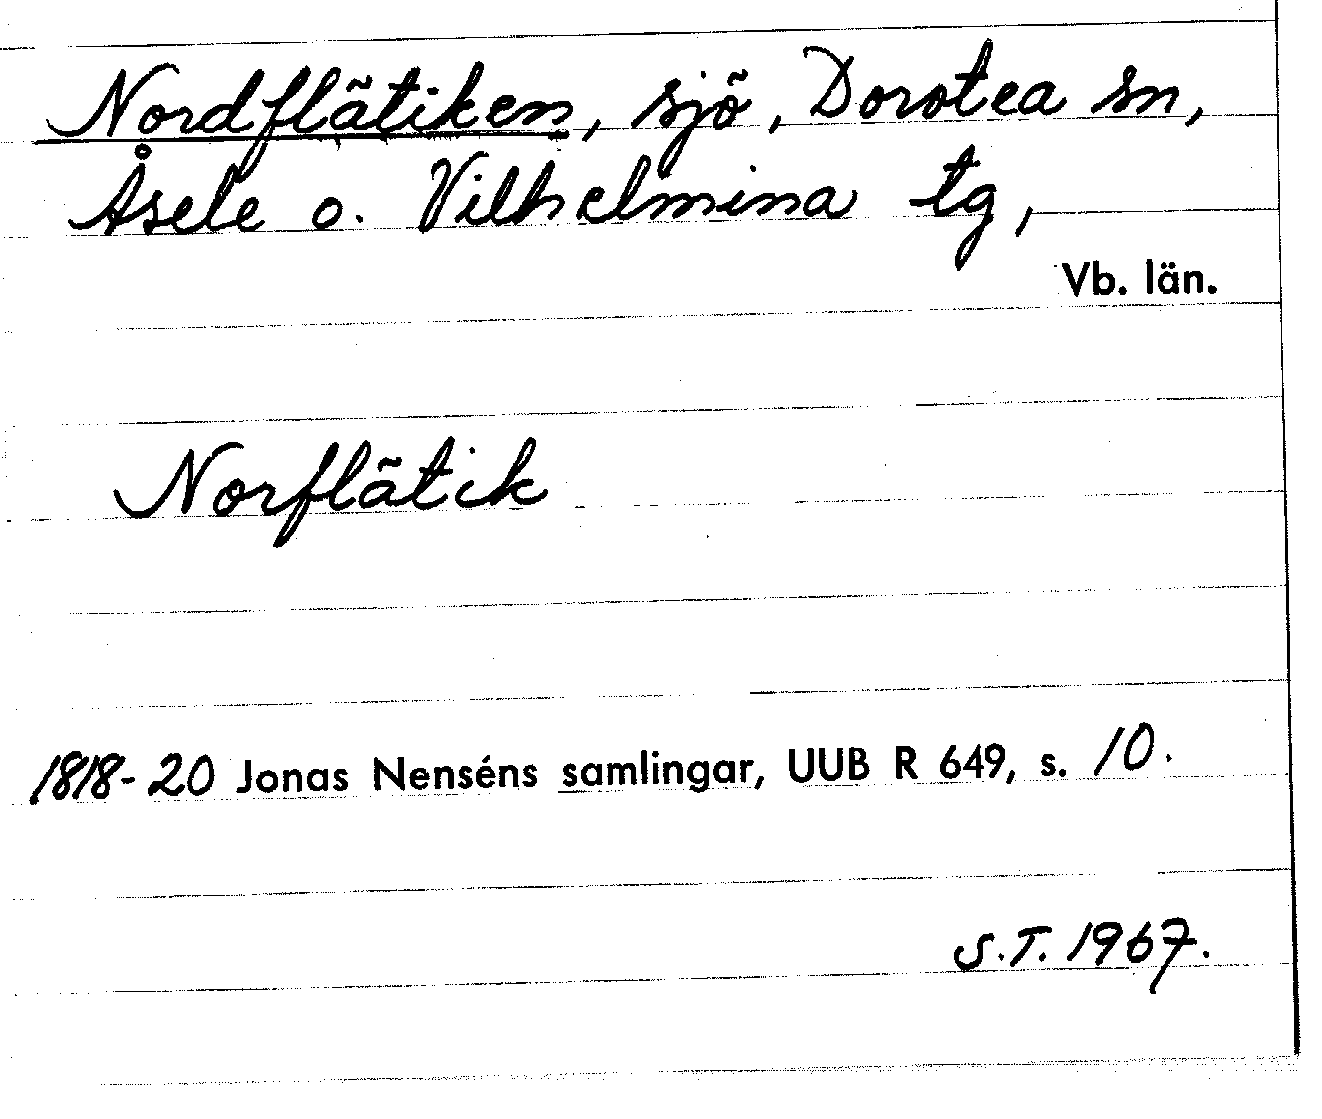 Nordflätiken, sjö, Dorotea sn,
Åsele o. Vilhelmina tg,
Vb. län.
Norflätik
1818-20 Jonas Nenséns samlingar, UUB R 649, s. 10.
S.T. 1967.